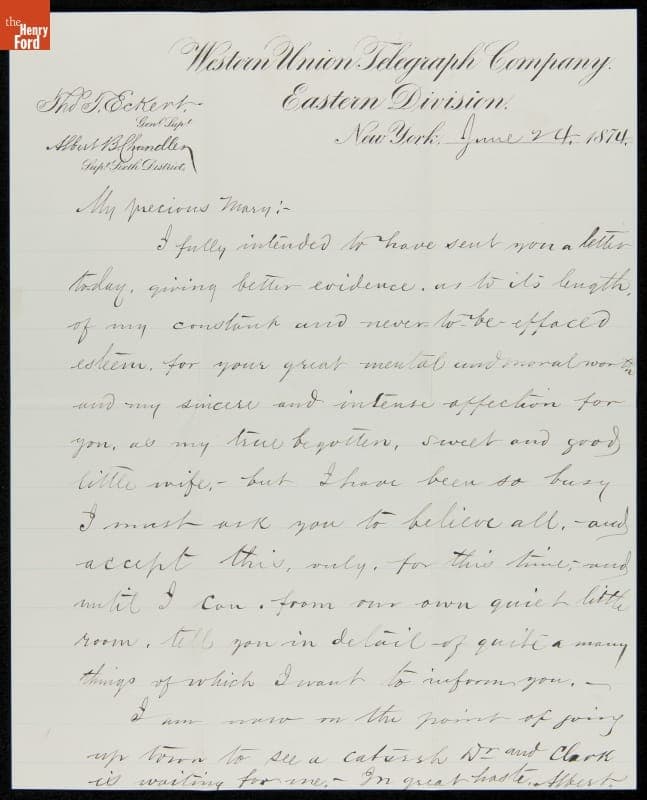 the
Henry
Ford
Western Union Telegraph Company.
Eastern Division.
Tho. T. Eckert.
Genl Supt
Albert B. Chandler
Supt Sixth District.
New York, June 24, 1874.
My precious Mary:-
I fully intended to have sent you a letter
today, giving better evidence, as to its length,
of my constant and never-to-be-effaced
esteem, for your great mental and moral worth
and my sincere and intense affection for
you, as my true begotten, sweet and good
little wife,- but I have been so busy
I must ask you to believe all, - and
accept this, only, for this time,- and
until I can, from our own quiet little
room, tell you in detail - of quite a many
things of which I want to inform you. -
I am now on the point of going
up town to see a Dr and Clark
is waiting for me.- In great haste. Albert.